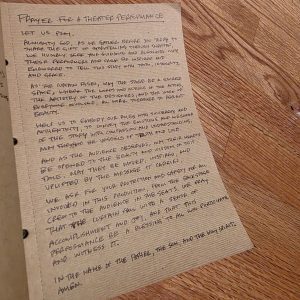 PRAYER FOR A THEATER PERFORMANCE
LET US PRAY,
ALMIGHTY GOD, AS WE GATHER BEFORE YOU TODAY TO
SHARE THE GIFT OF STORYTELLING THROUGH THEATER,
WE HUMBLY SEEK YOUR GUIDANCE AND BLESSING. MAY
THESE PERFORMERS AND CREW BE INSPIRED AND
EMPOWERED TO TELL THIS STORY WITH TRUTH, INTEGRITY,
AND GRACE.
AS THE CURTAIN RISES, MAY THE STAGE BE A SACRED
SPACE, WHERE THE WORDS AND ACTIONS OF THE ACTORS,
THE ARTISTRY OF THE DESIGNERS, AND THE WORK OF
EVERYONE INVOLVED, ALL WORK TOGETHER TO REFLECT
BEAUTY.
HELP US TO EMBODY OUR ROLES WITH SINCERITY AND
AUTHENTICITY, TO CONVEY THE EMOTIONS AND MESSAGES
OF THE STORY WITH COMPASSION AND UNDERSTANDING.
MAY THEY BE VESSELS OF TRUTH AND LOVE.
AND AS THE AUDIENCE OBSERVES, MAY THEIR HEARTS
BE OPENED TO THE BEAUTY AND WISDOM OF THIS
TALE. MAY THEY BE MOVED, INSPIRED, AND
UPLIFTED BY THE MESSAGE IT CARRIES.
WE ASK FOR YOUR PROTECTION AND SAFETY FOR ALL
INVOLVED IN THIS PRODUCTION, FROM THE BACKSTAGE
CREW TO THE AUDIENCE IN THE SEATS. WE PRAY
THAT THE CURTAIN FALLS WITH A SENSE OF
ACCOMPLISHMENT AND JOY, AND THAT THIS
PERFORMANCE BE A BLESSING TO ALL WHO PARTICIPATE
AND WITNESS IT.
IN THE NAME OF THE FATHER, THE SON, AND THE HOLY SPIRIT,
AMEN.